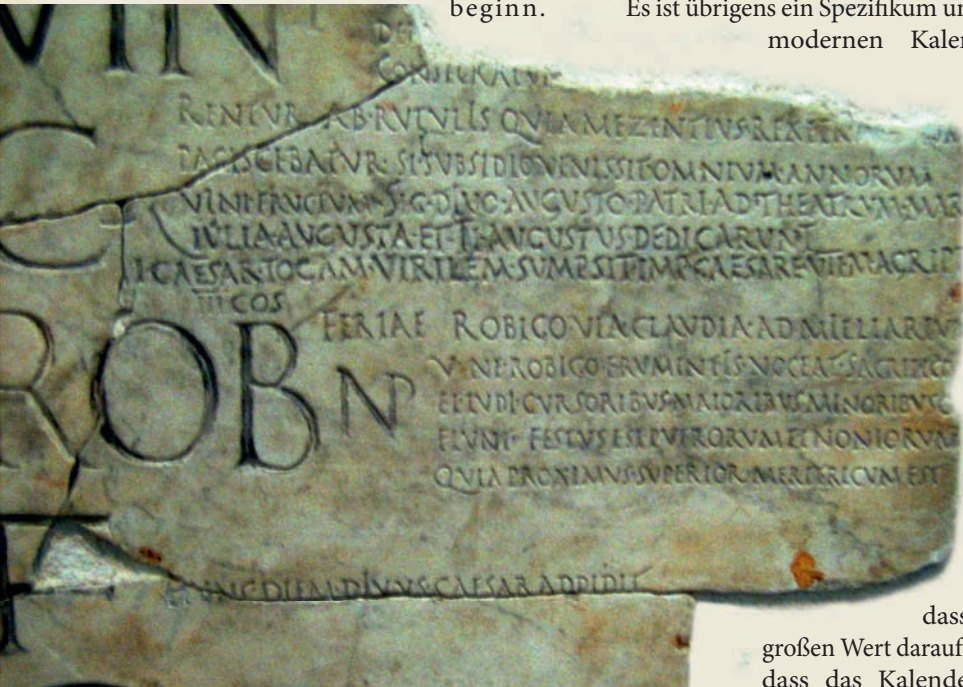 beginn.
Es ist übrigens ein Spezifikum
modernen
VIN
CONSECRATUR
RENTVR AB·RVTVLIS QVIA MEZENTIVS·REX
PACISCEBATVR·SI SVBSIDIO VENISSIT·OMNIVM·ANNORVM
VINI·FRVCTVM·SIG·DIVO·AVGVSTO·PATRI·AD·THEATRVM·
IVLIA·AVGVSTA·ET·TI·AVGVSTVS·DEDICARVNT
CAESAR·TOGAM·VIRILEM·SVMPSIT·IMP·CAESARE·VII·
III COS
ROB NP
FERIAE ROBIGO·VIA·CLAVDIA·AD MILLIARIVM
V·NE·ROBIGO·FRVMENTIS·NOCEAT·
ET·LVDI·CVRSORIBVS·MAIORIBVS·MINORIBVSQ
FIVNT·FESTVS·EST·PVERORVM·LENONIORVM
QVIA PROXIMVS·SVPERIOR·MERETRICVM·EST
HVNC·DIEM·DIVVS·CAESAR·ADDIDIT
dass
großen Wert darauf
dass das